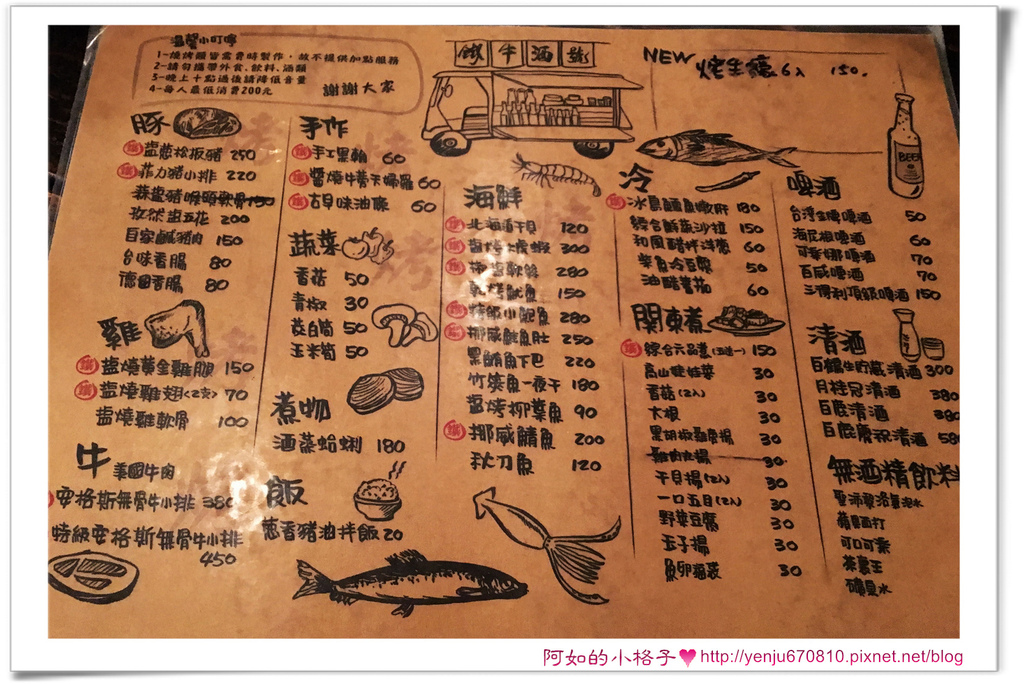 溫馨小叮嚀
1-燒烤類皆需費時製作，故不提供加點服務
2-請勿攜帶外食、飲料、酒類
3-晚上十點過後請降低音量
4-每人最低消費200元
謝謝大家
鐵牛酒號
NEW 烤生蠔6入 150.
豚
鹽蔥松板豬 250
菲力豬小排 220
蒜鹽豬喉頭軟骨 150
孜然出五花 200
自家鹹豬肉 150
台味香腸 80
德國香腸 80
雞
鹽燒黃金雞腿 150
鹽燒雞翅<2支> 70
鹽燒雞軟骨 100
牛 美國牛肉
安格斯無骨牛小排 380
特級安格斯無骨牛小排
450
手作
手工黑輪 60
醬燒牛蒡天婦羅 60
古早味油條 60
蔬菜
香菇 50
青椒 30
茭白筍 50
玉米筍 50
煮物
酒蒸蛤蜊 180
飯
蔥香豬油拌飯 20
海鮮
北海道干貝 120
300
280
150
280
挪威鮭魚肚 250
黑鮪魚下巴 220
竹筴魚一夜干 180
鹽烤柳葉魚 90
挪威鯖魚 200
秋刀魚 120
冷
180
綜合鮮蔬沙拉 150
和風醋拌洋蔥 60
柴魚冷豆腐 50
油醋蕃茄 60
關東煮
綜合元品煮(3選一) 150
高山娃娃菜 30
香菇(2入) 30
大根 30
黑胡椒 30
雞肉丸揚 30
干貝揚(2入)
一口五目(2入) 30
野菜豆腐 30
玉子揚 30
魚卵海袋 30
啤酒
台灣金牌啤酒 50
海尼根啤酒 60
可樂娜啤酒 70
百威啤酒 70
三得利頂級啤酒 150
BEER
清酒
白鶴生貯藏清酒 300
月桂冠清酒 380
白鹿清酒 380
白鹿慶祝清酒 580
無酒精飲料
蘋果西打
可口可樂
茶裏王
礦泉水
阿如的小格子♥http://yenju670810.pixnet.net/blog